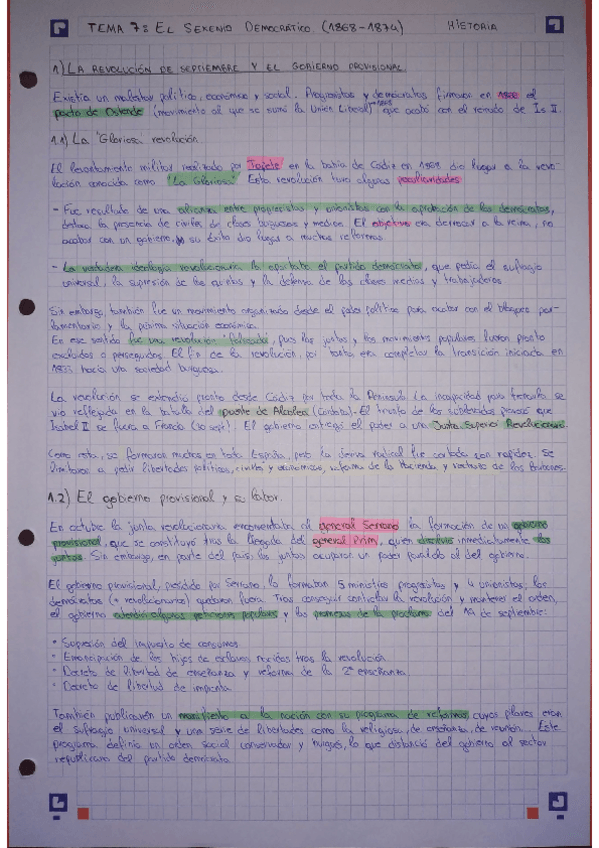 TEMA 7: EL SEXENIO DEMOCRÁTICO (1868-1874) HISTORIA
1) LA REVOLUCIÓN DE SEPTIEMBRE Y EL GOBIERNO PROVISIONAL
Existía un malestar político, económico y social. Progresistas y demócratas firmaron en el
pacto de Ostende (movimiento al que se sumó la Unión Liberal) que acabó con el reinado de Is II.
1.1) La "Gloriosa" revolución
El levantamiento militar realizado por Topete en la bahía de Cádiz en 1868 dio lugar a la revo-
lución conocida como "La Gloriosa". Esta revolución tuvo algunas peculiaridades:
- Fue resultado de una alianza entre progresistas y unionistas con la aprobación de los demócratas,
la presencia de clases burguesas y medias. El objetivo era derrocar a la reina, no
acabar con un gobierno, su éxito dio lugar a muchas reformas.
- La verdadera ideología revolucionaria la aportaba el partido demócrata, que pedía el sufragio
universal, la supresión de las quintas y la defensa de las clases medias y trabajadoras
Sin embargo también fue un movimiento organizado desde el poder político para acabar con el bloqueo par-
lamentario y la pésima situación económica.
En ese sentido fue una revolución, pues las juntas y los movimientos populares fueron pronto
excluidos o perseguidos. El fin de la revolución, por tanto era completar la transición iniciada en
1833 hacia una sociedad burguesa.
La revolución se extendió pronto desde Cádiz por toda la Península. La incapacidad para frenarla se
vio reflejada en la batalla del puente de Alcolea (Córdoba). El triunfo de los sublevados provocó que
Isabel II se fuera a Francia (30 sept). El gobierno entregó el poder a una Junta Superior Revolucionaria.
Como esta, se formaron muchas en toda España, pero la deriva radical fue cortada con rapidez. Se
limitaron a pedir libertades políticas, civiles y económicas, reforma de la Hacienda, y rechazo de los Borbones.
1.2) El gobierno provisional y su labor.
En octubre la junta revolucionaria encomendaba al general Serrano la formación de un gobierno
provisional, que se constituyó tras la llegada del general Prim, quien disolvió inmediatamente las
juntas. Sin embargo, en parte del país, las juntas ocuparon un poder paralelo al del gobierno.
El gobierno provisional, presidido por Serrano, lo formaban 5 ministros progresistas y 4 unionistas; los
demócratas (+ revolucionarios) quedaron fuera. Tras conseguir controlar la revolución y mantener el orden,
el gobierno atendió algunas peticiones populares y las promesas de la proclama del 19 de septiembre:
· Supresión del impuesto de consumos
· Emancipación de los hijos de esclavos nacidos tras la revolución
· Decreto de libertad de enseñanza y reforma de la 2ª enseñanza
· Decreto de libertad de imprenta.
También publicaron un manifiesto a la nación con su programa de reformas, cuyos pilares eran
el sufragio universal y una serie de libertades como la religiosa, de enseñanza, de reunión... Este
programa definía un orden social conservador y burgués, lo que distanció del gobierno al sector
republicano del partido demócrata.